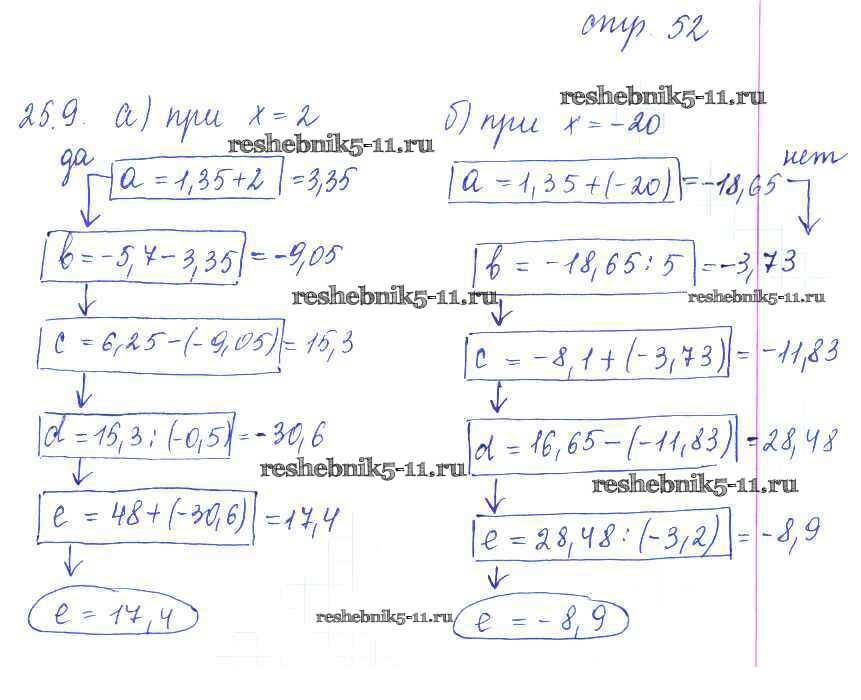 стр. 52
25.9. а) при x = 2
да
a = 1,35+2 = 3,35
b = -5,7 - 3,35 = -9,05
c = 6,25 - (-9,05) = 15,3
d = 15,3 : (-0,5) = -30,6
e = 48 + (-30,6) = 17,4
e = 17,4
б) при x = -20
нет
a = 1,35 + (-20) = -18,65
b = -18,65 : 5 = -3,73
c = -8,1 + (-3,73) = -11,83
d = 16,65 - (-11,83) = 28,48
e = 28,48 : (-3,2) = -8,9
e = -8,9
reshebnik5-11.ru
reshebnik5-11.ru
reshebnik5-11.ru
reshebnik5-11.ru
reshebnik5-11.ru
reshebnik5-11.ru
reshebnik5-11.ru